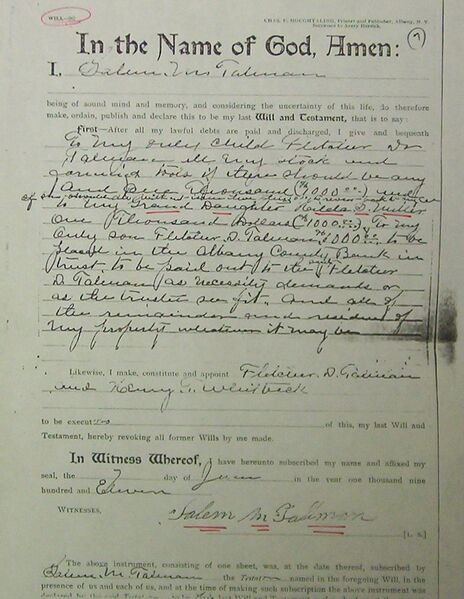 WILL—
CHAS. F. HOUGHTALING, Printer and Publisher, Albany, N. Y.
In the Name of God, Amen:
I, Salem M Talman
being of sound mind and memory, and considering the uncertainty of this life, do therefore
make, ordain, publish and declare this to be my last Will and Testament, that is to say:
First—After all my lawful debts are paid and discharged, I give and bequeath
To my only Child Fletcher D.
Talman all my stock and
farming tools if there should be any
and One Thousand
Daughter
One Thousand Dollars ($1000.00) To my
only son Fletcher. D. Talman 1000.00 to be
placed in the Albany County Bank in
trust, to be paid out to the Fletcher
D. Talman as necessity demands or
as the trustee see fit. and all of
the remainder and residue of
my property whatever it may be
Likewise, I make, constitute and appoint Fletcher. D. Talman
and Henry
to be execut of this, my last Will and
Testament, hereby revoking all former Wills by me made.
In Witness Whereof, I have hereunto subscribed my name and affixed my
seal, the 7 day of June in the year one thousand nine
hundred and Eleven
WITNESSES,
Salem M Talman
[L. S.]
The above instrument, consisting of one sheet, was, at the date thereof, subscribed by
Salem M. Talman the Testator named in the foregoing Will, in the
presence of us and each of us, and at the time of making such subscription the above instrument was